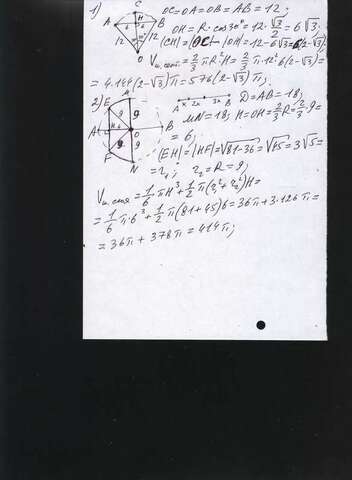 1) OC=OA=OB=AB=12;
OH=R·cos30°=12·√3/2=6√3.
|CH|=|OC|-|OH|=12-6√3=6(2-√3).
V ш. сект.=2/3πR²H=2/3π·12²·6(2-√3)=
=4·144(2-√3)π=576(2-√3)π;
2) D=AB=18;
MN=18; H=OH=2/3R=2/3·9=
=6;
|EH|=|HF|=√81-36=√45=3√5=
=r₁; r₂=R=9;
V ш. слоя=1/6πH³+1/2π(r₁²+r₂²)H=
=1/6π·6³+1/2π(81+45)6=36π+3·126π=
=36π+378π=414π;